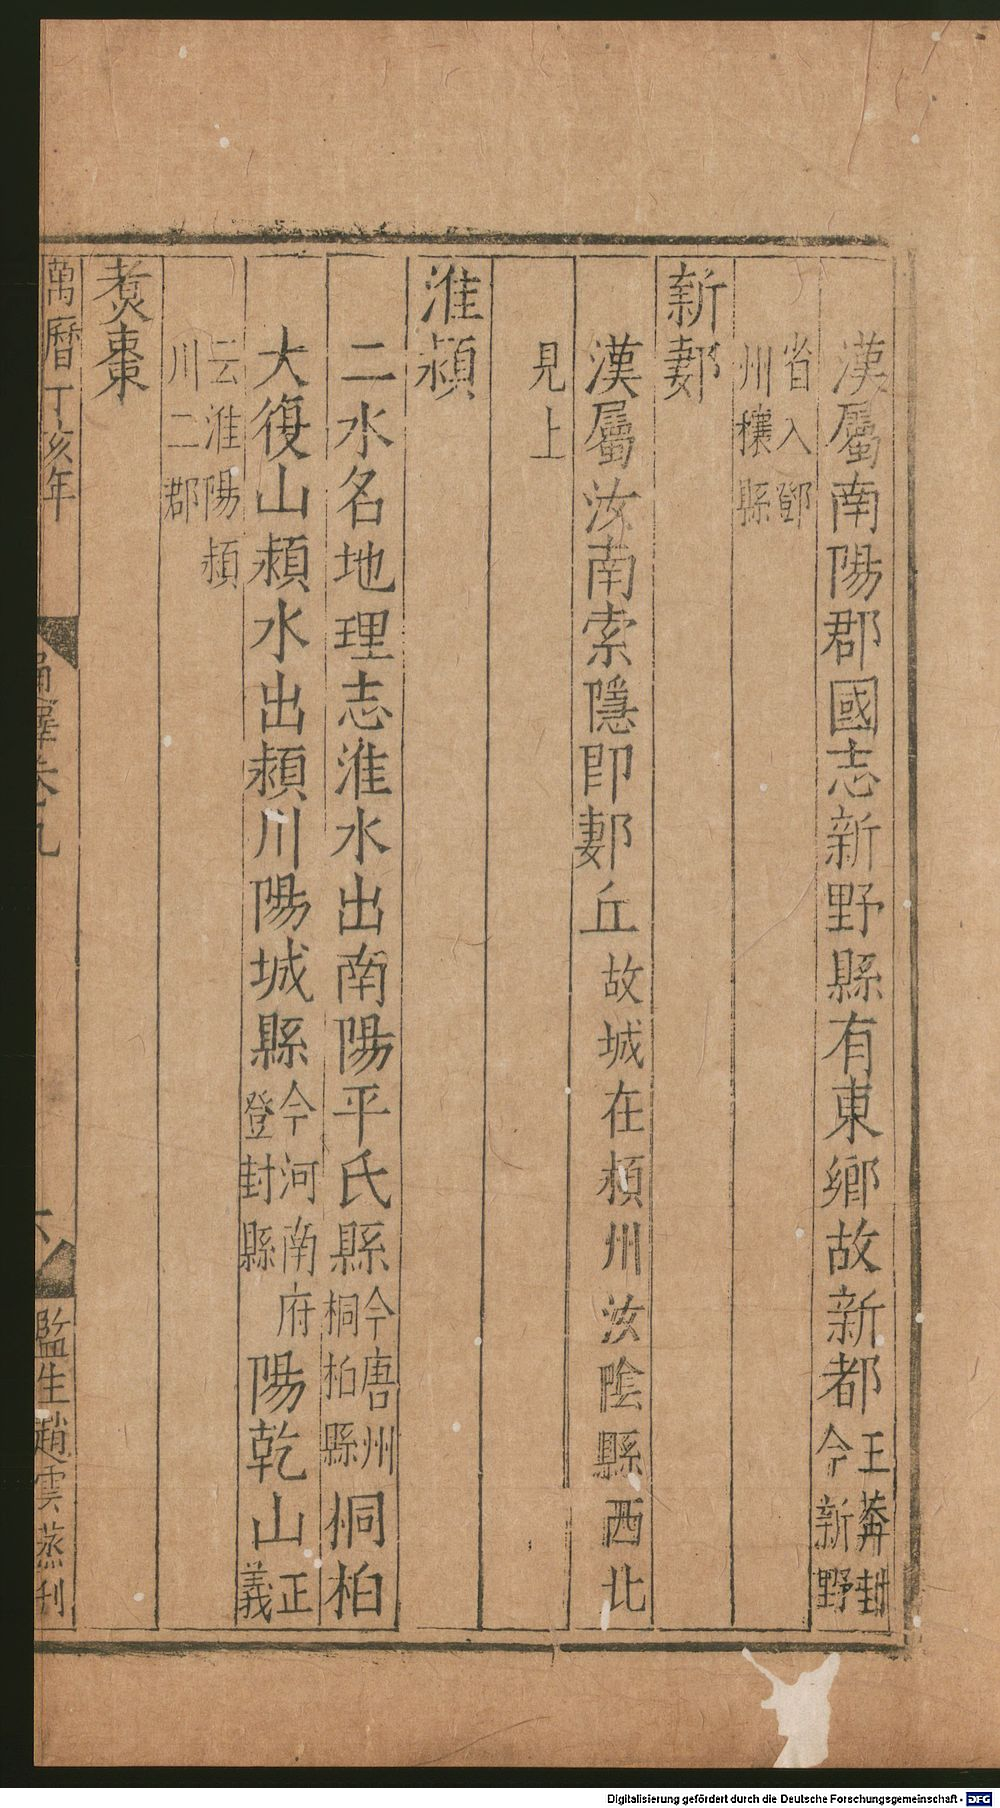 漢屬南陽郡國志新野縣有東鄉故新都王莽封今新野
省入鄧州穰縣
新郪
漢屬汝南索隱即郪丘故城在潁州汝陰縣西北
見上
淮潁
二水名地理志淮水出南陽平氏縣今唐州桐柏縣桐柏
大復山潁水出潁川陽城縣今河南府登封縣陽乾山正義
云淮陽潁川二郡
煑棗
萬曆丁亥年
通釋卷九
六
監生趙雲蒸刊
Digitalisierung gefördert durch die Deutsche Forschungsgemeinschaft - DFG